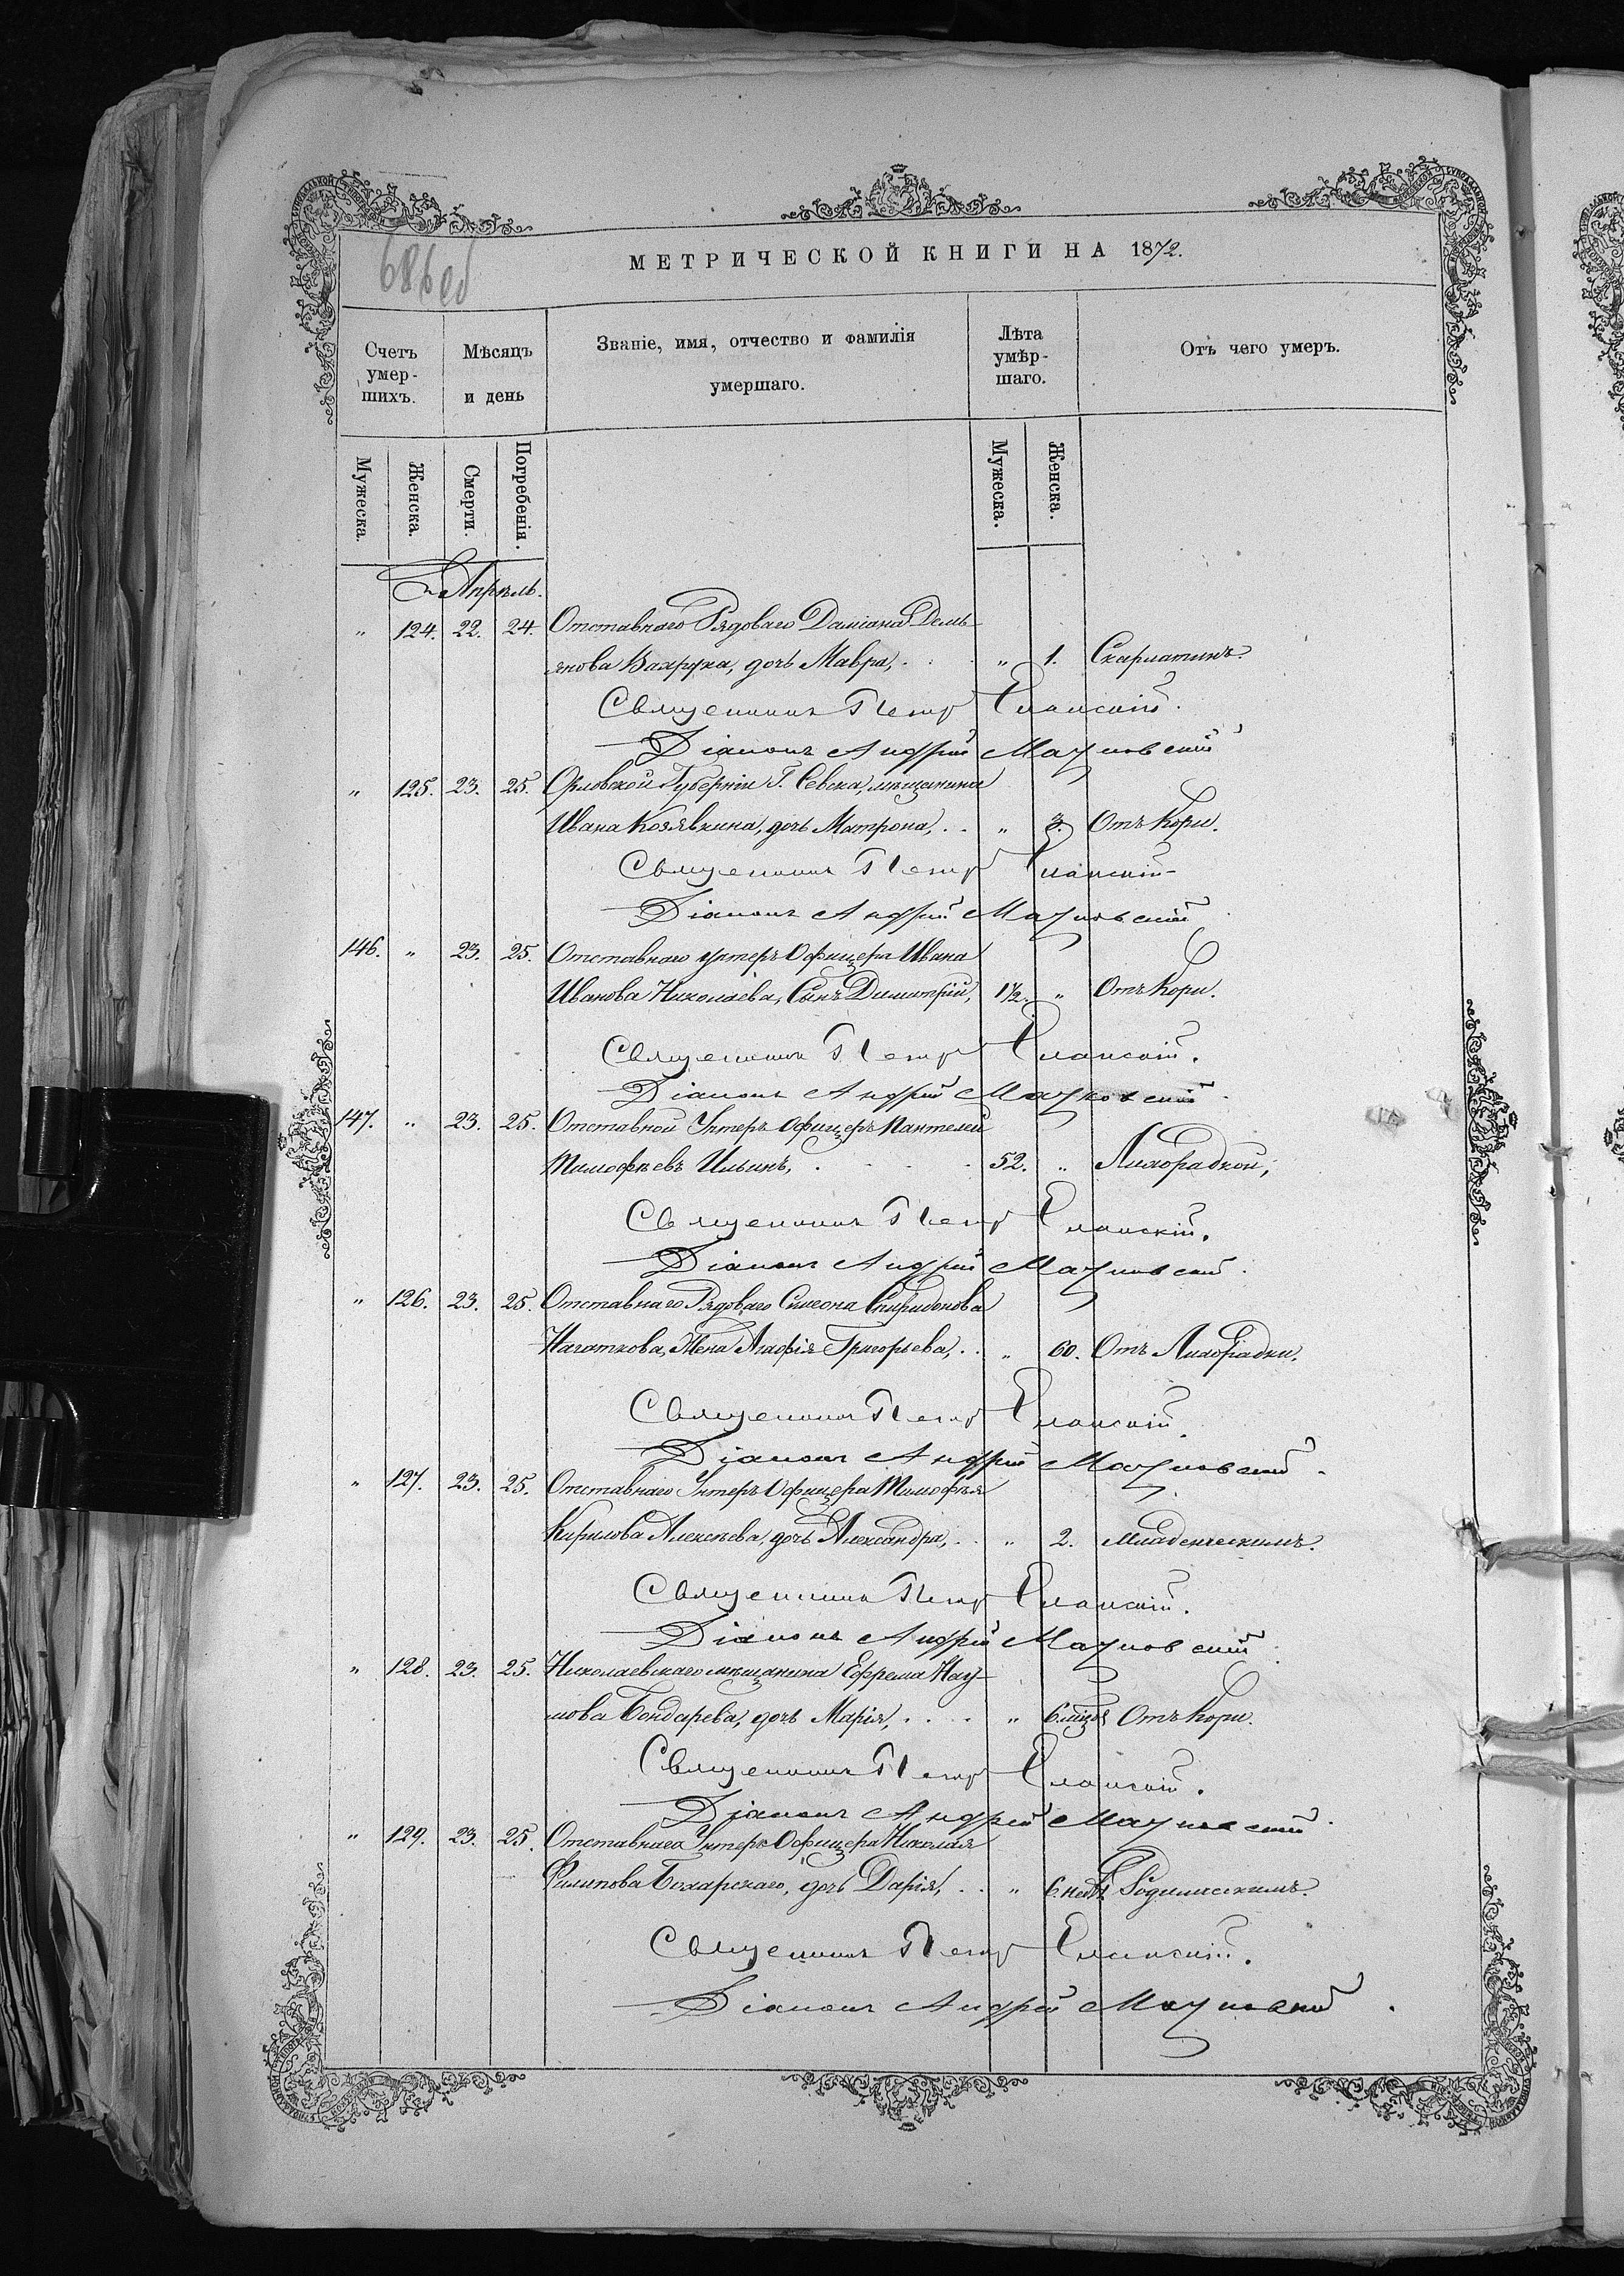 686об
МЕТРИЧЕСКОЙ КНИГИ НА 1872.
Счетъ умер-шихъ.
Мѣсяцъ и день
Званіе, имя, отчество и фамилія умершаго.
Лѣта умѣр-шаго.
Отъ чего умеръ.
Мужеска.
Женска.
Смерти.
Погребенія.
Мужеска.
Женска.
Апрѣль.
" 124. 22. 24. Отставнаго Рядоваго Даміана Демь-
янова Вахрука, дочь Мавра, . . . " 1. Скарлатинъ.
Священникъ Петр Еланскій.
Діаконъ Андрей
" 125. 23. 25. Орловской Губерніи Г. Севска, мѣщанина
Ивана Козявкина, дочь Матрона, . . " 3. Отъ Кори.
Священникъ Петр Еланскій
Діаконъ Андрей
146. " 23. 25. Отставнаго унтеръ Офицера Ивана
Иванова Николаева, Сынъ Димитрій, 1½. " Отъ Кори.
Священникъ Петр Еланскій.
Діаконъ Андрей
147. " 23. 25. Отставной Унтеръ Офицеръ Пантелей
Тимофѣевъ Ильинъ, . . . . 52. " Лихорадкой,
Священникъ Петр Еланскій.
Діаконъ Андрей
" 126. 23. 25. Отставнаго Рядоваго Симеона Спиридонова
Нагаткова, Жена Агафія Григорьева, . . " 60. Отъ Лихорадки.
Священникъ Петр Еланскій
Діаконъ Андрей
" 127. 23. 25. Отставнаго Унтеръ Офицера Тимофѣя
Кирилова Алексѣева, дочь Александра, . . " 2. Младенческимъ.
Священникъ Петр Еланскій.
Діаконъ Андрей
" 128. 23. 25. Николаевскаго мѣщанина Ефрема Нау-
мова Бондарева, дочь Марія, . . . . " 6 Отъ Кори.
Священникъ Петр Еланскій.
Діаконъ Андрей
" 129. 23. 25. Отставнаго Унтеръ Офицера Николая
Филипова Бохарскаго, дочь Дарія, . . " 6 Родимческимъ.
Священникъ Петр Еланскій.
Діаконъ Андрей